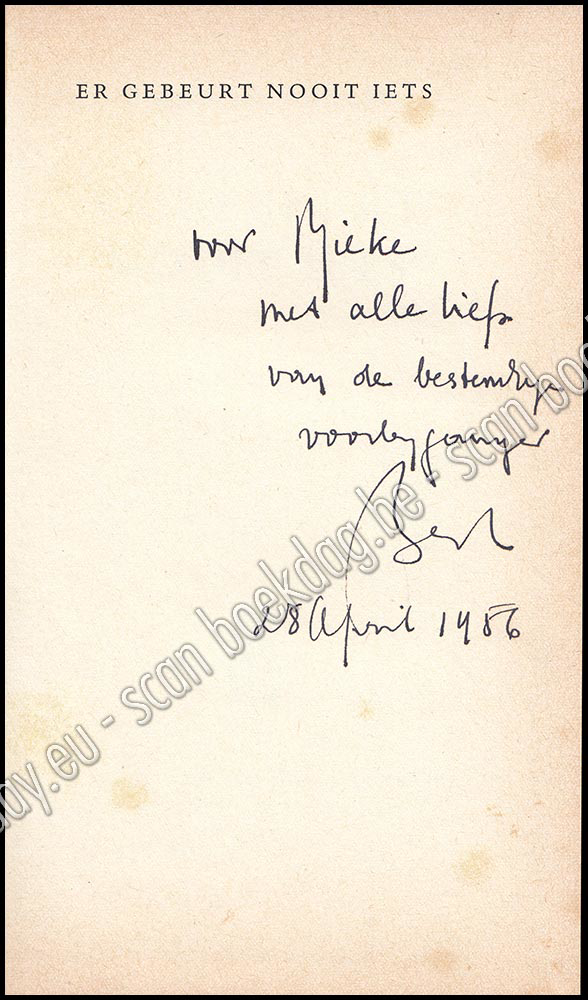 ER GEBEURT NOOIT IETS
voor
met alle liefs
van de bestendige
voorbyganger
Bert
28 April 1956
day.eu - scan boekdag.be - scan boek